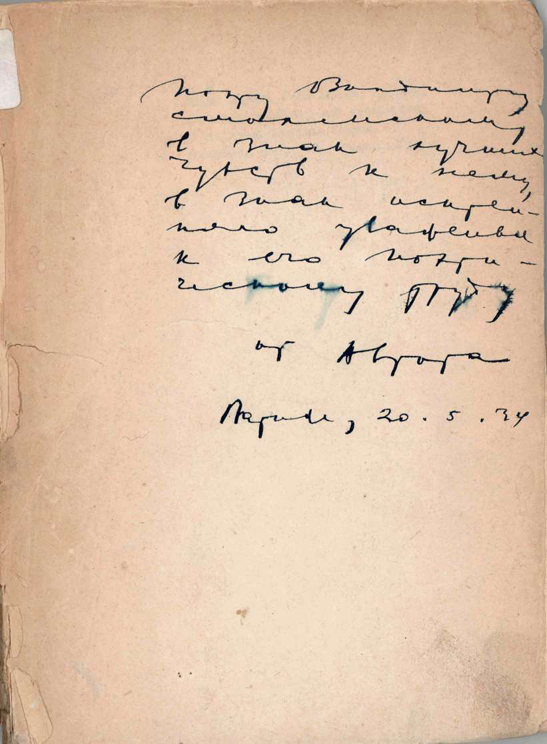 Поэту Владимиру
Смоленскому
в знак лучших
чувств к нему,
в знак искрен-
няго уважения
к его поэти-
ческому труду
от Автора
Париж, 20.5.34